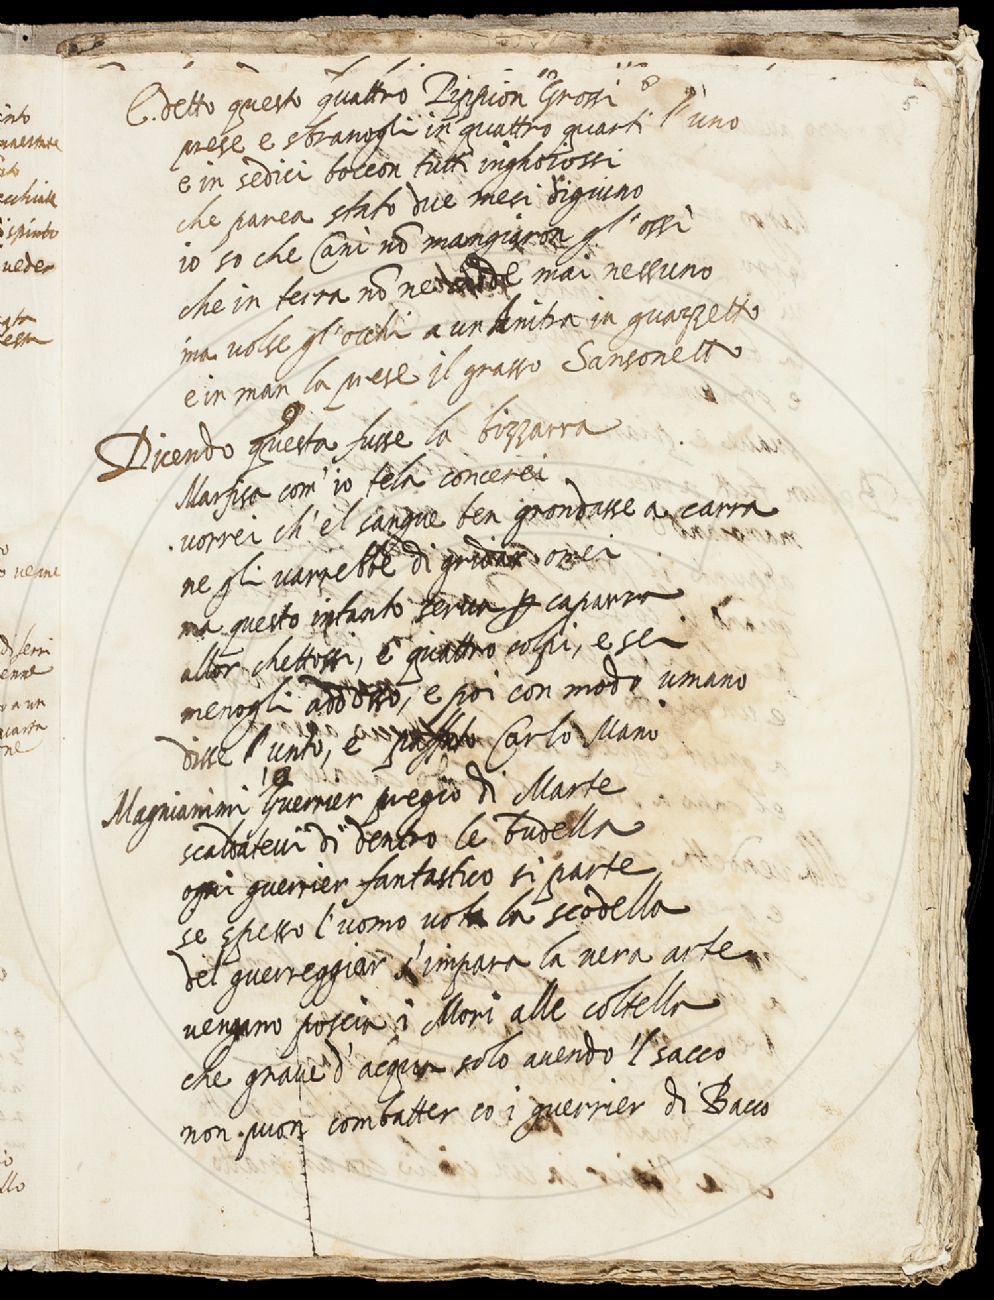 5
E detto questo quattro Pippion Grossi
prese e sbranogli in quattro quarti l'uno
e in sedici boccon tutti inghiotossi
che parea stato due mesi digiuno
io so che Cani nō mangiaron gl'ossi
che in terra nō ne cadde mai nessuno
ma volse gl'occhi a un Anitra in guazzetto
e in man la prese il grasso Sansonetto
Dicendo questa fusse la bizzarra
Marfisa com'io tela concerei
vorrei ch'el sangue ten grondasse a carra
ne gli varrebbe di gridar omei
ma questo intanto serva p caparra
allor chettossi, e quattro colpi, e sei
menogli addosso, e poi con modo umano
disse l'unto, e Carlo Mano
Magnianimi Guerrier pregio di Marte
scaldatevi di dentro le budella
ogni guerrier fantastico si parte
se spesso l'uomo vota la scodella
del guerreggiar s'impara la vera arte
vengano poscia i Mori alle coltella
che grave d'acqua solo avendo 'l sacco
non puon combatter co i guerrier di Bacco